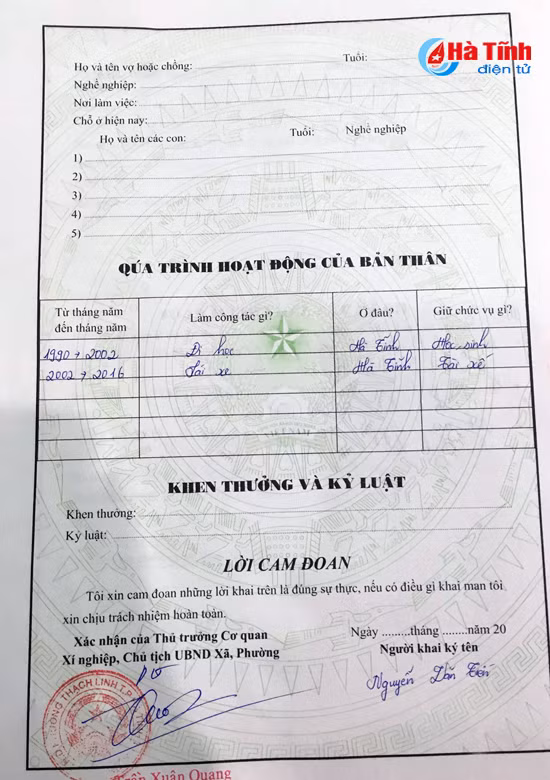 Hà Tĩnh
điện tử
Họ và tên vợ hoặc chồng: Tuổi:
Nghề nghiệp:
Nơi làm việc:
Chỗ ở hiện nay:
Họ và tên các con: Tuổi: Nghề nghiệp
1)
2)
3)
4)
5)
QÚA TRÌNH HOẠT ĐỘNG CỦA BẢN THÂN
Từ tháng năm đến tháng năm Làm công tác gì? Ở đâu? Giữ chức vụ gì?
1990 → 2002 Đi học Hà Tĩnh Học sinh
2002 → 2016 Lái xe Hà Tĩnh Tài xế
KHEN THƯỞNG VÀ KỶ LUẬT
Khen thưởng:
Kỷ luật:
LỜI CAM ĐOAN
Tôi xin cam đoan những lời khai trên là đúng sự thực, nếu có điều gì khai man tôi
xin chịu trách nhiệm hoàn toàn.
Xác nhận của Thủ trưởng Cơ quan
Xí nghiệp, Chủ tịch UBND Xã, Phường
Ngày .........tháng ........năm 20
Người khai ký tên
Nguyễn Văn
THẠCH LINH T.P
Trần Xuân Quang